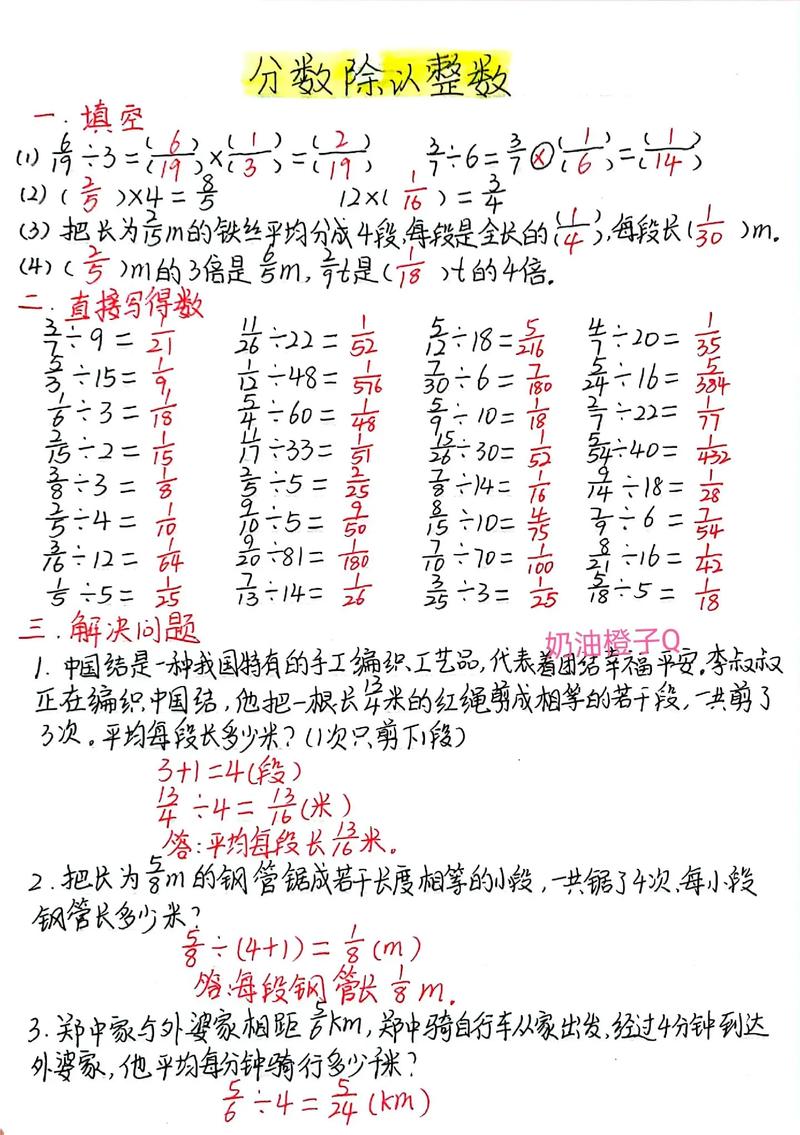 分数除以整数
一.填空
(1) 6/19÷3=(6)/(19)×(1)/(3)=(2)/(19) 3/7÷6=3/7⊗(1)/(6)=(1)/(14)
(2) (2/5)×4=8/5 12×(1/16)=3/4
(3) 把长为2/15m的铁丝平均分成4段,每段是全长的(1)/(4),每段长(1/30)m.
(4) (2/5)m的3倍是6/5m, 2/9t是(1/18)t的4倍.
二.直接写得数
3/7÷9=1/21 11/26÷22=1/52 5/12÷18=5/216 4/7÷20=1/35
5/3÷15=1/9 1/12÷48=1/576 7/30÷6=7/180 5/24÷16=5/384
1/6÷3=1/18 5/4÷60=1/48 5/9÷10=1/18 2/7÷22=1/77
2/15÷2=1/15 11/17÷33=1/51 15/26÷30=1/52 5/54÷40=1/432
3/8÷3=1/8 2/5÷5=2/25 7/8÷14=1/16 9/14÷18=1/28
2/5÷4=1/10 9/10÷5=9/50 8/15÷10=4/75 7/9÷6=7/54
3/16÷12=1/64 9/20÷81=1/180 7/10÷70=1/100 8/21÷16=1/42
1/5÷5=1/25 7/13÷14=1/26 3/25÷3=1/25 5/18÷5=1/18
三.解决问题
奶油橙子Q
1.中国结是一种我国特有的手工编织工艺品,代表着团结幸福平安.李叔叔
正在编织中国结,他把一根长13/4米的红绳剪成相等的若干段,一共剪了
3次。平均每段长多少米?(1次只剪下1段)
3+1=4(段)
13/4÷4=13/16(米)
答:平均每段长13/16米。
2.把长为5/8m的钢管锯成若干长度相等的小段,一共锯了4次,每小段
钢管长多少米?
5/8÷(4+1)=1/8(m)
答:每段钢管长1/8m.
3.郑中家与外婆家相距5/6km,郑中骑自行车从家出发,经过4分钟到达
外婆家,他平均每分钟骑行多少千米?
5/6÷4=5/24(km)